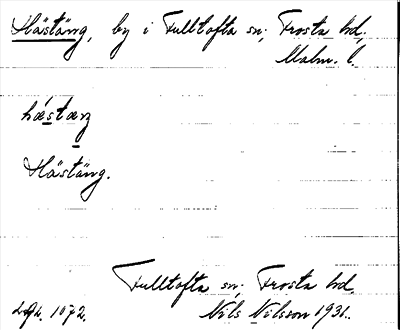 Hästäng, by i Fulltofta sn, Frosta hd,
Malm. l.
hæstæŋ
Hästäng.
Fulltofta sn, Frosta hd.
Lgh. 1072. Nils Nilsson 1931.